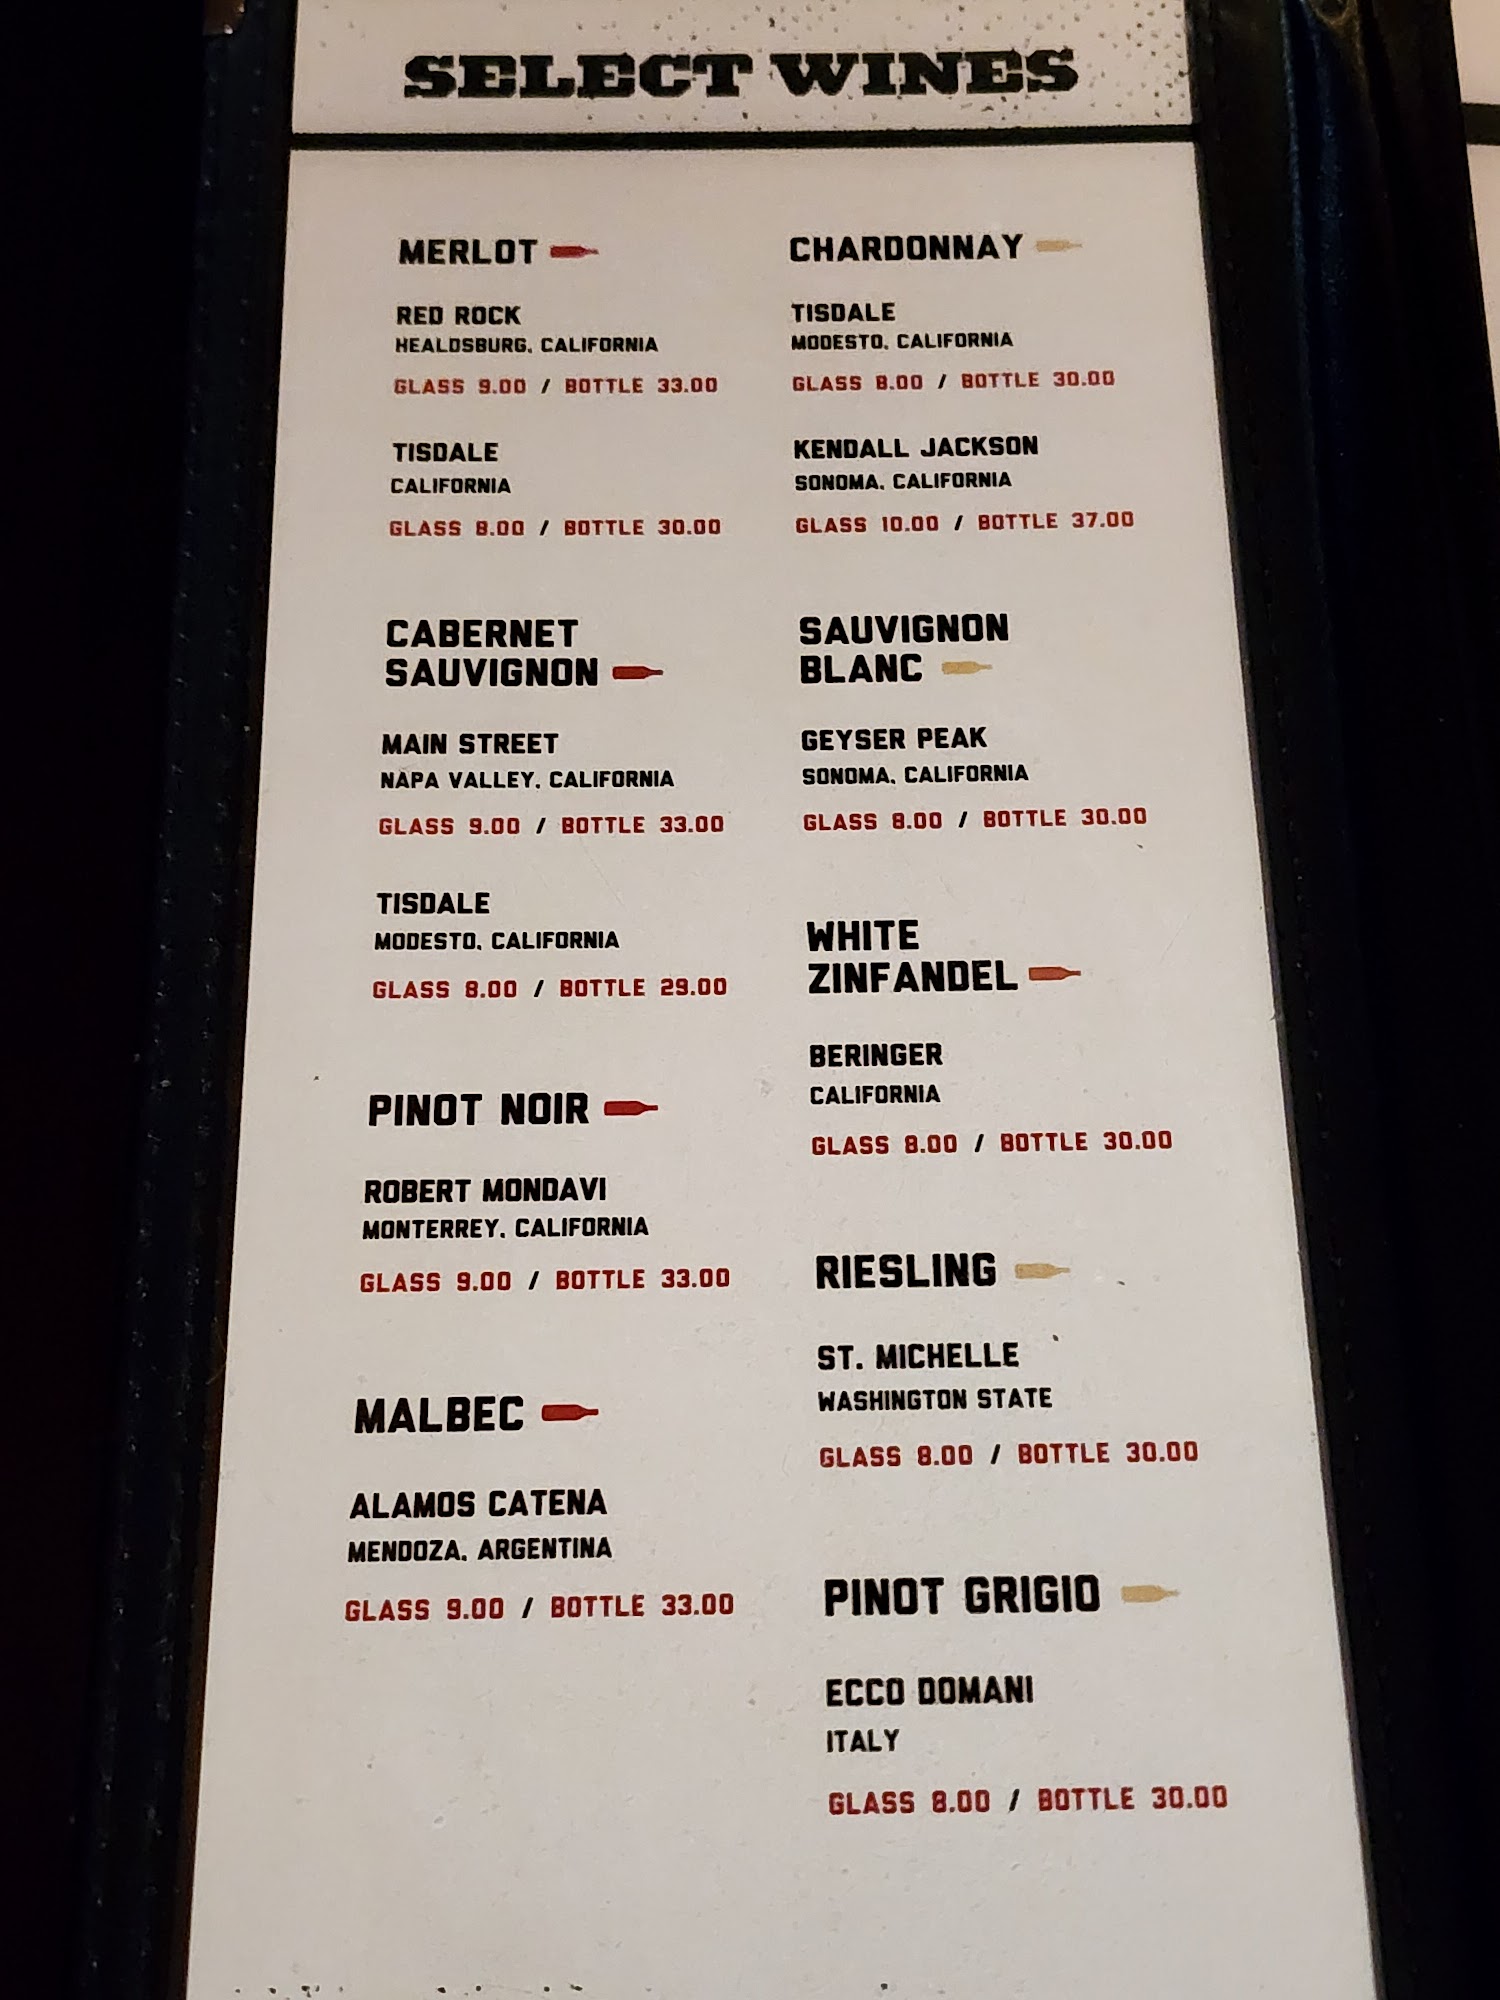 SELECT WINES
MERLOT
RED ROCK
HEALDSBURG, CALIFORNIA
GLASS 9.00 / BOTTLE 33.00
TISDALE
CALIFORNIA
GLASS 8.00 / BOTTLE 30.00
CABERNET
SAUVIGNON
MAIN STREET
NAPA VALLEY, CALIFORNIA
GLASS 9.00 / BOTTLE 33.00
TISDALE
MODESTO, CALIFORNIA
GLASS 8.00 / BOTTLE 29.00
PINOT NOIR
ROBERT MONDAVI
MONTERREY, CALIFORNIA
GLASS 9.00 / BOTTLE 33.00
MALBEC
ALAMOS CATENA
MENDOZA, ARGENTINA
GLASS 9.00 / BOTTLE 33.00
CHARDONNAY
TISDALE
MODESTO, CALIFORNIA
GLASS 8.00 / BOTTLE 30.00
KENDALL JACKSON
SONOMA, CALIFORNIA
GLASS 10.00 / BOTTLE 37.00
SAUVIGNON
BLANC
GEYSER PEAK
SONOMA, CALIFORNIA
GLASS 8.00 / BOTTLE 30.00
WHITE
ZINFANDEL
BERINGER
CALIFORNIA
GLASS 8.00 / BOTTLE 30.00
RIESLING
ST. MICHELLE
WASHINGTON STATE
GLASS 8.00 / BOTTLE 30.00
PINOT GRIGIO
ECCO DOMANI
ITALY
GLASS 8.00 / BOTTLE 30.00